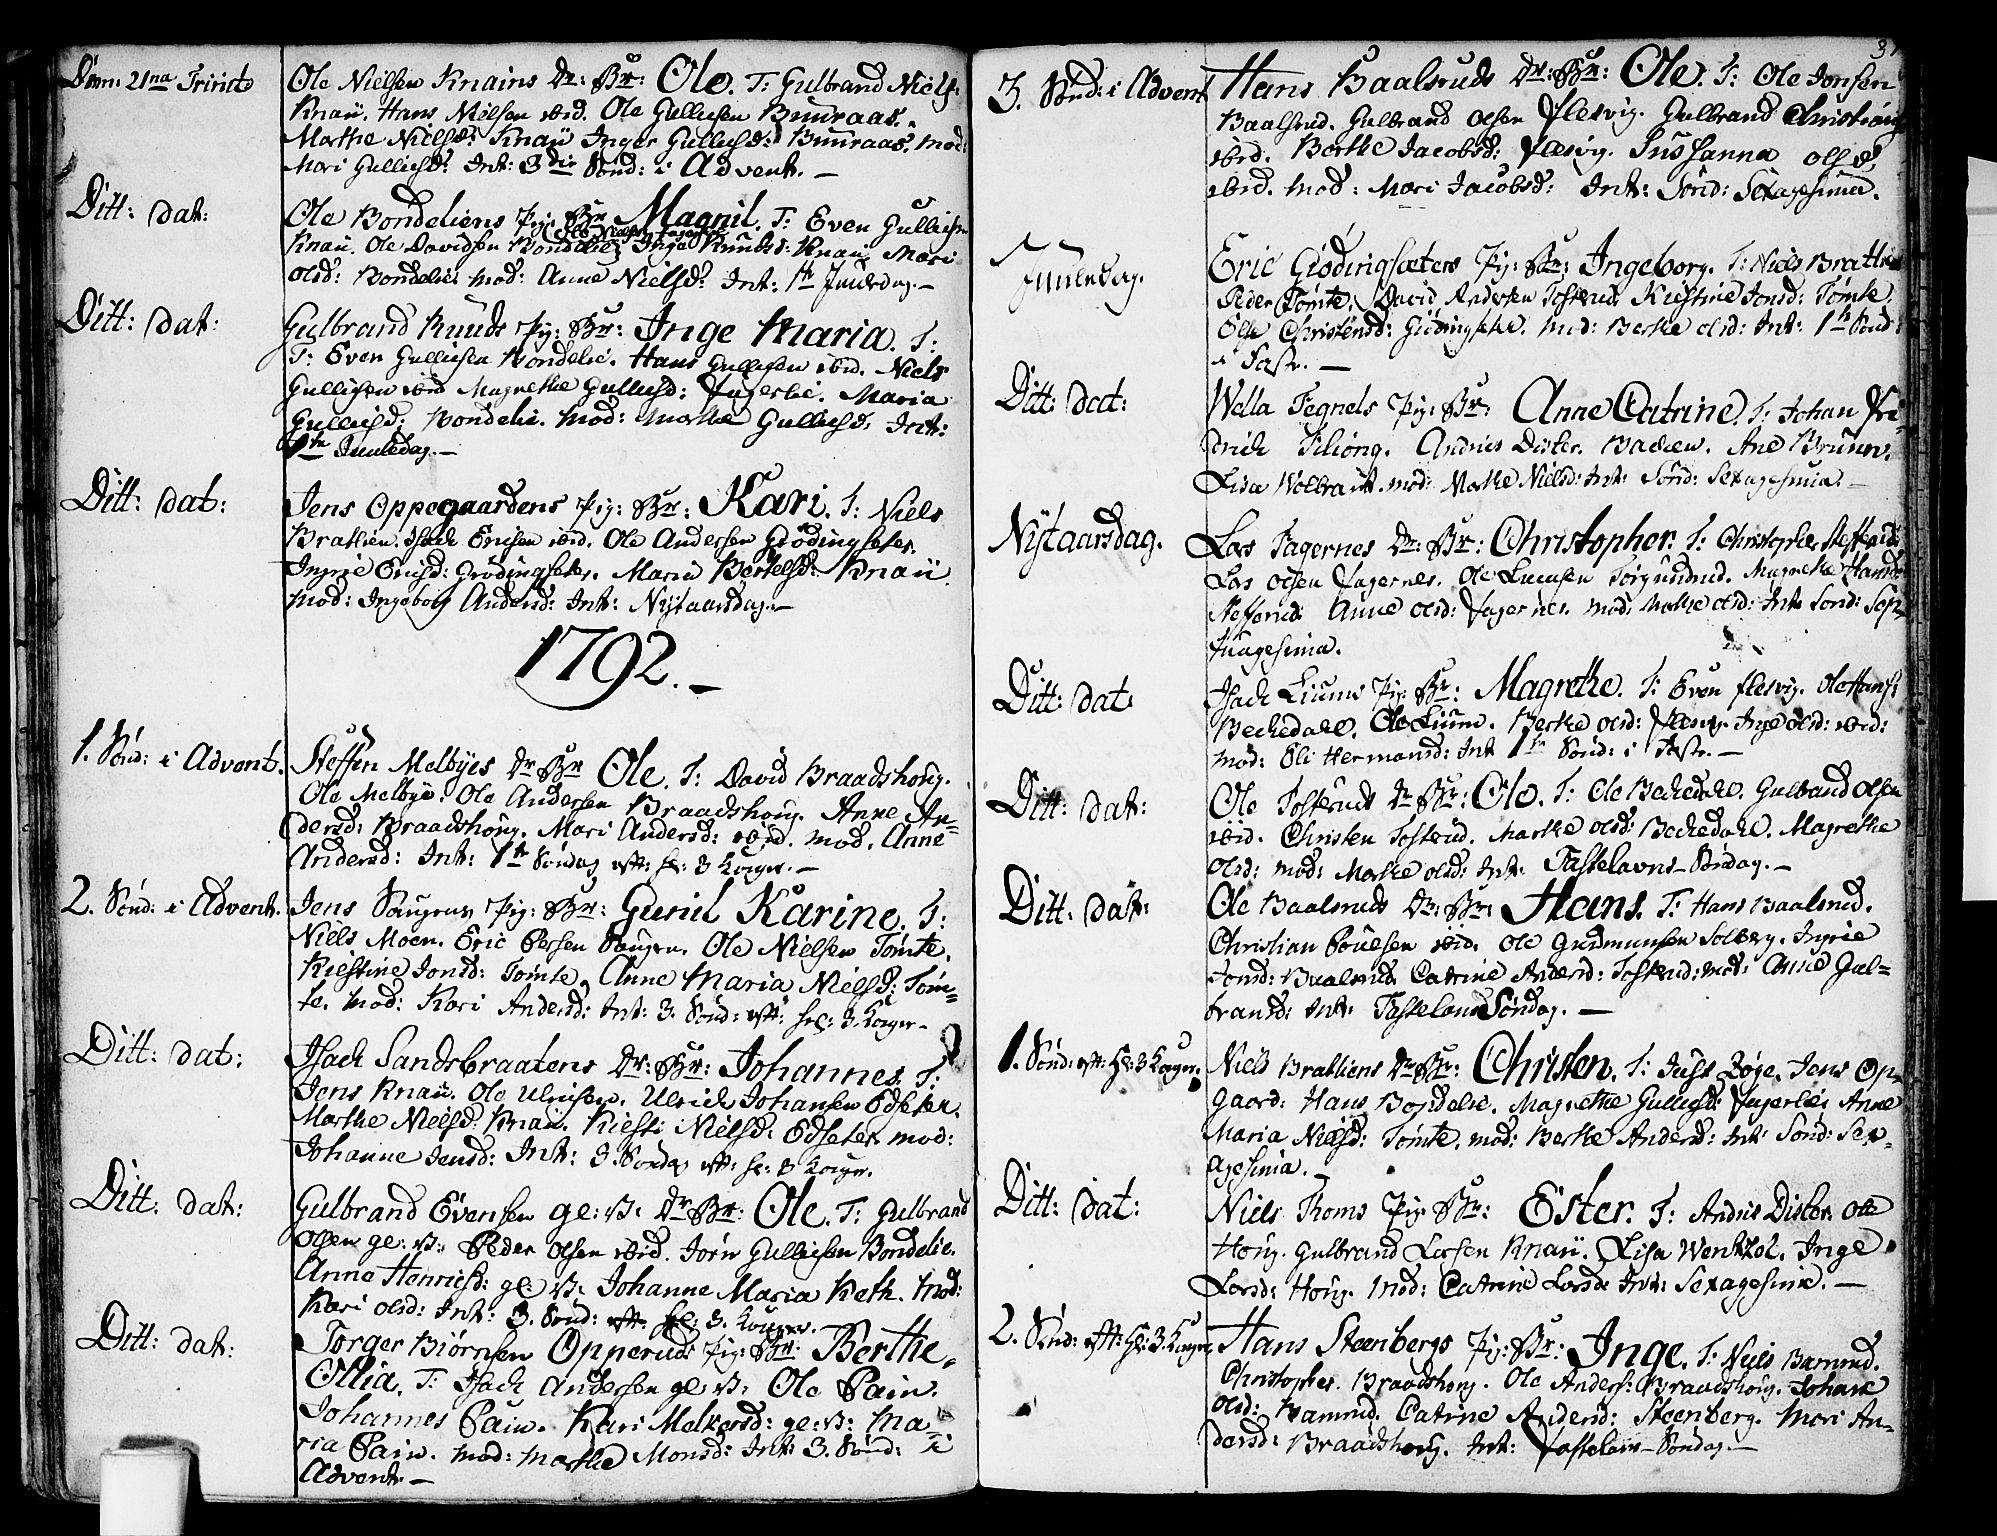 Dom: 21na Trinit:
Ole Nielsen Knains Dr: Br: Ole. T: Gulbrand Niels:
Knaü. Hans Nielsen ibid. Ole Gulliksen Buuraas.
Marthe Nielsd: Knaü Inger Gulliksd: Buuraas. mod:
Mari Gulliksd: Int: 3die Sönd: i Advent. —
Ditt: dat:
Ole Bondeliens Pig: Br: Magnil. T: Even Gulliksen
Knaü. Ole Davidsen Bondelie. Inga Knudsd: Knaü. Mari
Olsd: Bondelie. mod: Anne Nielsd: Int: 1te Juuledag. —
Ditt: dat:
Gulbrand Ruuds Pig: Br: Inge Maria. T:
T: Even Gulliksen Bondelie. Hans Gulliksen ibid. Niels
Gulliksen ibid Magrethe Gulliksd: Fagerlie. Maria
Gulliksd: Bondelie. mod: Marthe Gulliksd: Int:
1te Juuledag. —
Ditt: dat:
Jens Oppegaardens Pig: Br: Kari. T: Niels
Brathen. Isach Ericsen ibid. Ole Andersen Grödingseter.
Ingrie Ericsd: Grödingseter. Maria Bertelsd: Knaü.
mod: Ingeborg Andersd: Int: Nÿtaarsdag. —
1792. —
1. Sönd: i Advent.
Steffen Melbyes Dr Br Ole. T: David Braadshoug.
Ole Melbye. Ole Andersen Braadshoug. Anne An=
dersd: Braadshoug. Mari Andersd: ibid. mod. Anne
Andersd: Int: 1te Söndag eft: hel: 3 Konger. —
2. Sönd: i Advent.
Jens Pig: Br: Guriul Karine. T:
Niels Moen. Eric Persen Ole Nielsen Tömte.
Kiestine Jonsd: Tomte. Anne Maria Nielsd: Töm=
te. mod: Kari Andersd: Int: 3. Sönd: eft: hel: 3. Konger —
Ditt: dat:
Isach Sandsbraatens Dr: Br: Johannes. T:
Jens Knaü. Ole Ulrichsen. Ulrich Johansen Edseter.
Marthe Nielsd: Knaü. Kiesti Nielsd: Edseter mod:
Johanne Jensd: Int: 3 Söndag eft: hel: 3 Konger.
Ditt: dat:
Gulbrand Evensen ge: V: Dr Br: Ole. T: Gulbrand
Olsen ge: V: Peder Olsen ibid. Jörn Gulliksen Bondelie.
Anne Henricsd: ge V: Johanne Maria Keth. mod:
Kari Olsd: Int: 3. Sönd: eft: hel: 3. Konger.
Ditt: dat:
Torger Biörnsen Opperuds Pig: Br: Berthe
Ollia. T: Isach Andersen ge: V: Ole Pain.
Johannes Pain. Kari Melkersd: ge: V: Ma=
ria Pain. mod: Marthe Monsd: Int: 3. Sönd: i
Advent. —
3. Sönd: i Advent
Hans Baalsruds Dr: Br: Ole. T: Ole Jonsen
Baalsrud. Gulbrand Olsen Flesvig. Gulbrand Christians:
ibid. Berthe Jacobsd: Flesvig. Susanna Olsd:
ibid. mod: Mari Jacobsd: Int: Sönd: Sexagesima.
Juuledag.
Eric Giödingsæters Pig: Br: Ingeborg. T: Niels Brathen
Peder Tömte. David Andersen Tosterud. Kiestine Jonsd: Tömte.
Christensd: Giödingseter. mod: Berthe Olsd: Int: 1te Sönd:
i Faste. —
Ditt: dat:
Wella Tegnels Pig: Br: Anne Catrine. T: Johan Fri=
drich Andries Dister. Bachen. Ane Brunn.
Lisa Wolbrant. mod: Marthe Nielsd: Int: Sönd: Sexagesima. —
Nÿtaarsdag.
Lars Fagernes Dr: Br: Christopher. T: Christopher Stefferud:
Lars Olsen Fagernes. Ole Larsen Torgundrud. Magrethe Hansd:
Stefferud. Anne Olsd: Fagernes. mod: Marthe Olsd: Int: Sönd: Sep=
tuagesima.
Ditt: dat
Isach Liums Pig: Br: Magrethe. T: Even Flesvig. Ole Hans:
Bechedahl. Ole Lium. Berthe Olsd: Flesvig. Inge Olsd: ibid:
mod: Eli Hermansd: Int 1te Sönd: i Faste. —
Ditt: dat:
Ole Tosteruds Dr Br: Ole. T: Ole Bechedahl. Gulbrand Olsen
ibid. Christen Tosterud. Marthe Olsd: Bechedahl. Magrethe
Olsd: mod: Marthe Olsd: Int: Fastelavns-Söndag. —
Ditt: dat:
Ole Baalsruds Dr: Br: Hans. T: Hans Baalsrud.
Christian Poulsen ibid. Ole Gudmunsen Solberg. Ingrie
Jonsd: Baalsrud. Catrine Andersd: Tosterud. mod: Anne Gul=
bransd: Int: Fastelavns Söndag. —
1. Sönd: eft: Hl: 3 Konger.
Niels Brathens Dr Br: Christen. T: Just Böye. Jens Op=
gaard. Hans Bondelie. Magrethe Gulliksd: Fagerlie. Anne
Maria Nielsd: Tömte. mod: Berthe Andersd: Int: Sönd: Sex=
agesima. —
Ditt: dat:
Niels Thoms Pig: Br: Ester. T: Andries Dister. Ole
Houg. Gulbrand Larsen Knaü. Lisa Wentzel. Inge
Larsd: Houg. mod: Catrine Larsd: Int: Sexagesima. —
2. Sönd: eft: Hl: 3 Konger,
Hans Steenbergs Pig: Br: Inge. T: Niels Bamrud.
Christopher Braadshoug. Ole Anders: Braadshoug. Johane
Olsd: Bamrud. Catrine Andersd: Steenberg. Mari An=
dersd: Braadshoug. Int: Fastelavn-Söndag. —